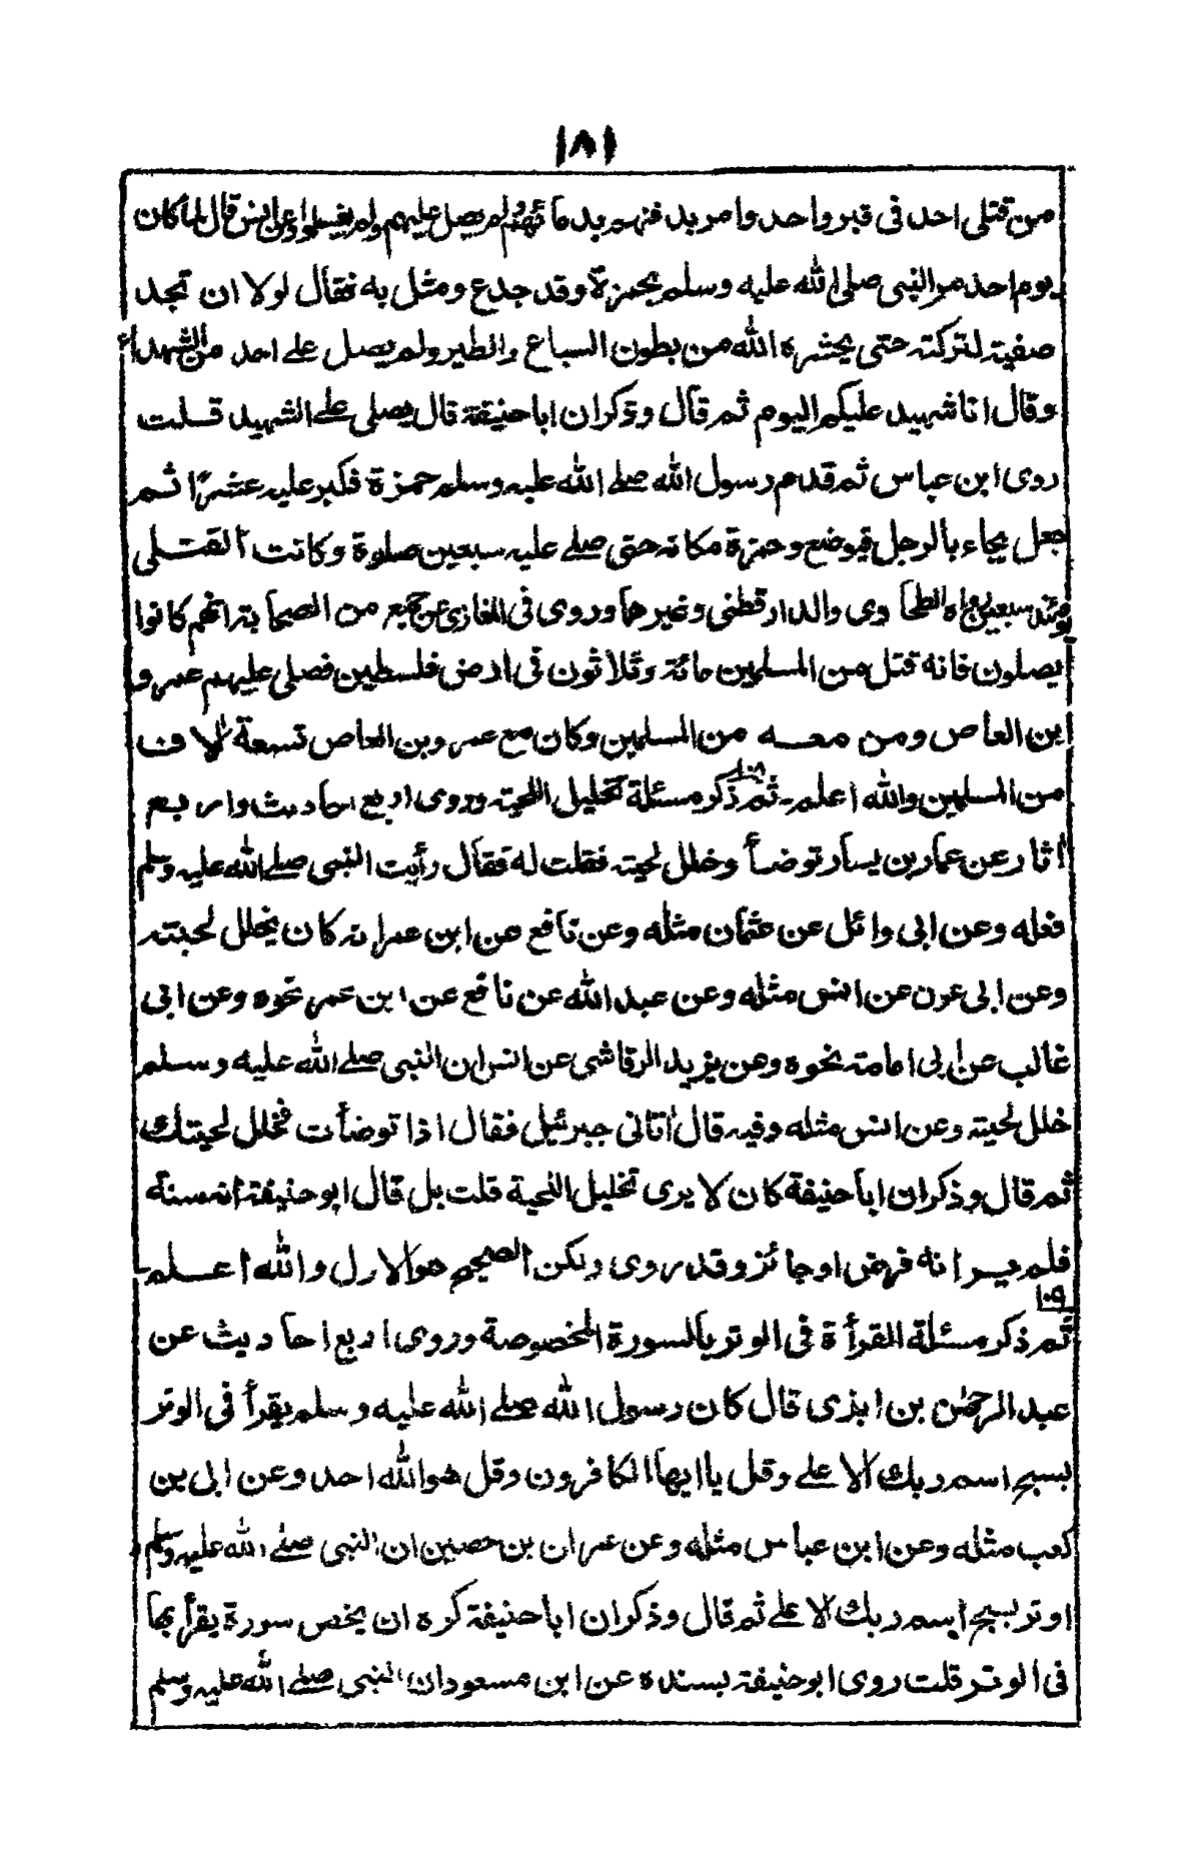 ١٨١
من قتلى احد فى قبر واحد وامر بدفنهم بدمائهم ولم يصل عليهم ولم يغسلوا وعن انس قال لما كان
يوم احد مر النبى صلى الله عليه وسلم بحمزة وقد جدع ومثل به فقال لولا ان تجد
صفية لتركته حتى يحشره الله من بطون السباع والطير ولم يصل على احد من الشهداء
وقال انا شهيد عليكم اليوم ثم قال وذكر ان ابا حنيفة قال يصلى على الشهيد قلت
روى ابن عباس ثم قدم رسول الله صلے الله عليه وسلم حمزة فكبر عليه عشرًا ثم
جعل يجاء بالرجل فيوضع وحمزة مكانه حتى صلے عليه سبعين صلوة وكانت القتلى
يومئذ سبعين رواه الطحاوى والدارقطنى وغيرهما وروى فى المغازى عن جمع من الصحابة انهم كانوا
يصلون فانه قتل من المسلمين مائة وثلاثون فى ارض فلسطين فصلى عليهم عمرو
ابن العاص ومن معه من المسلمين وكان مع عمرو بن العاص تسعة الاف
من المسلمين والله اعلم ١٠٨ ثم ذكر مسئلة تخليل اللحية وروى اربع احاديث واربع
اثار عن عمار بن يسار توضأ وخلل لحيته فقلت له فقال رأيت النبى صلے الله عليه وسلم
فعله وعن ابى وائل عن عثمان مثله وعن نافع عن ابن عمر انه كان يخلل لحيته
وعن ابى عون عن انس مثله وعن عبد الله عن نافع عن ابن عمر نحوه وعن ابى
غالب عن ابى امامة نحوه وعن يزيد الرقاشى عن انس ان النبى صلے الله عليه وسلم
خلل لحيته وعن انس مثله وفيه قال اتانى جبرئيل فقال اذا توضأت فخلل لحيتك
ثم قال وذكر ان ابا حنيفة كان لا يرى تخليل اللحية قلت بل قال ابو حنيفة انه سنة
فلم ير انه فرض او جائز وقد روى ولكن الصحيح هو الاول والله اعلم
١٠٩
ثم ذكر مسئلة القرأة فى الوتر بالسورة المخصوصة وروى اربع احاديث عن
عبد الرحمٰن بن ابذى قال كان رسول الله صلے الله عليه وسلم يقرأ فى الوتر
بسبح اسم ربك الا على وقل يا ايها الكافرون وقل هو الله احد وعن ابى بن
كعب مثله وعن ابن عباس مثله وعن عمران بن حصين ان النبى صلے الله عليه وسلم
اوتر بسبح اسم ربك الا على ثم قال وذكر ان ابا حنيفة كره ان يخص سورة يقرأ بها
فى الوتر قلت روى ابو حنيفة بسنده عن ابن مسعود ان النبى صلے الله عليه وسلم